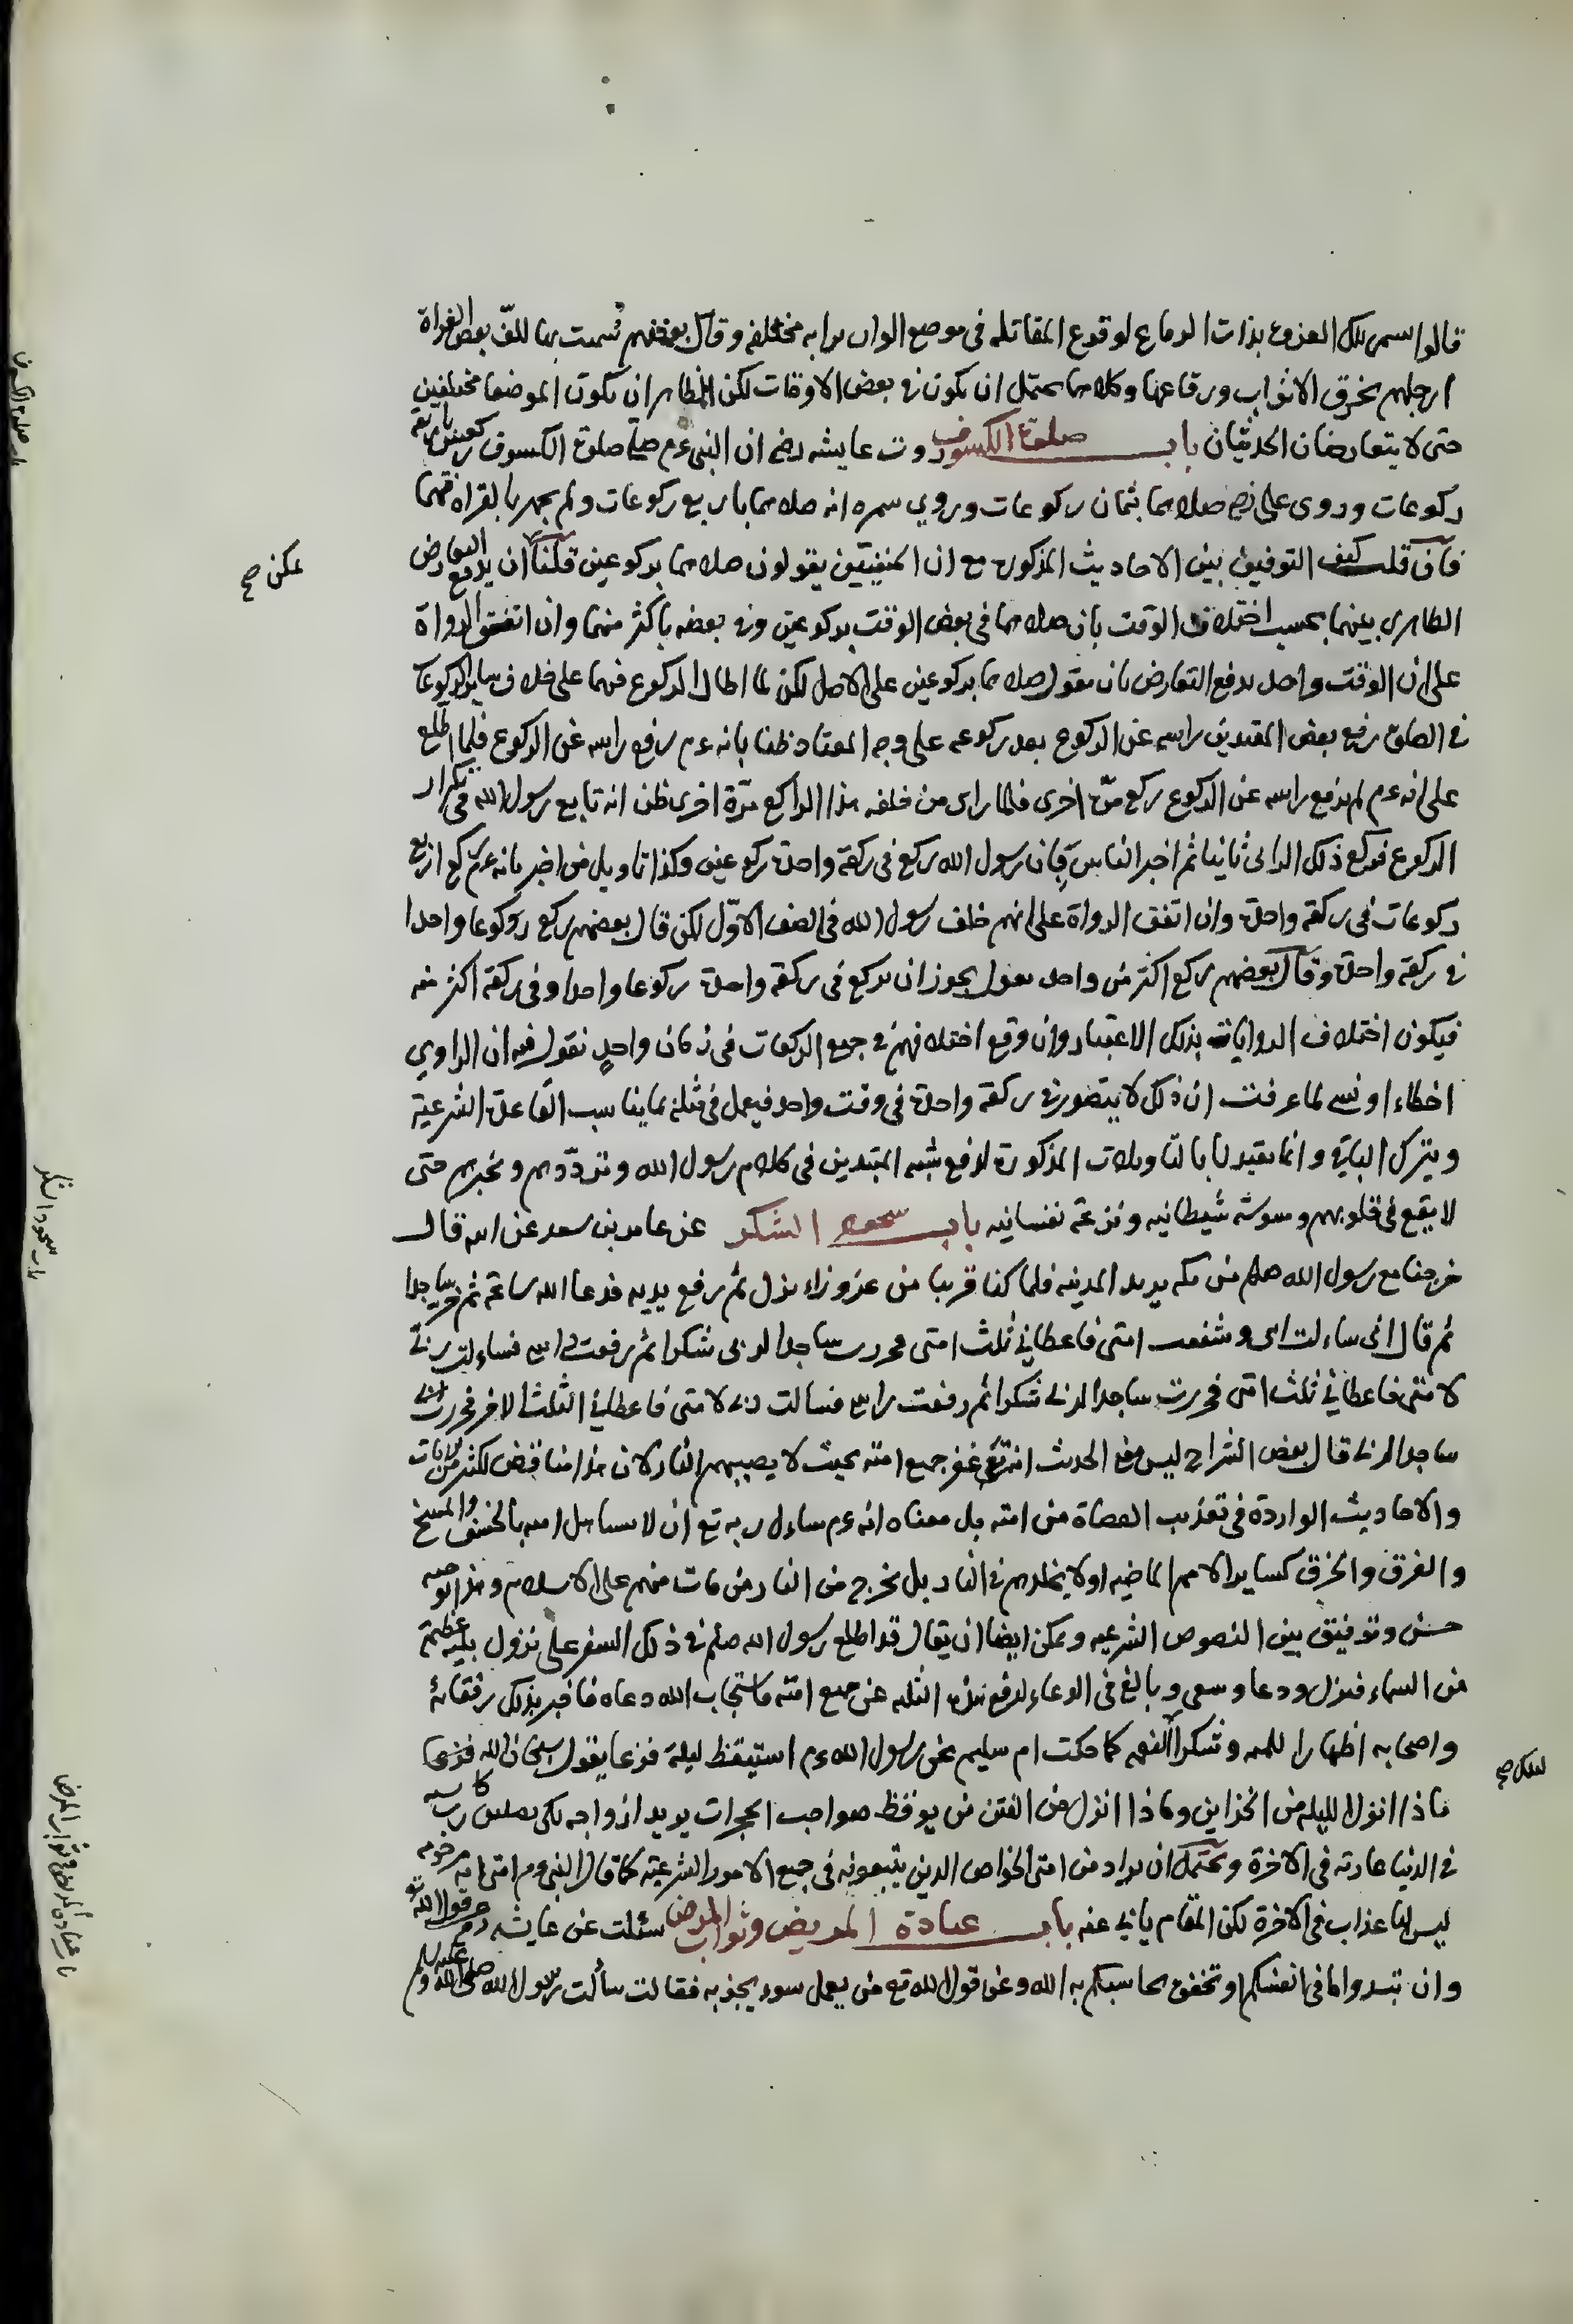 قالوا سمى تلك الغزوة بذات الرقاع لوقوع المقاتلة فى موضع الوان ترابه مختلفه وقال بعضهم سميت بها للف بعض الغزاة
ارجلهم بخرق الاثواب ورقاعها وكلاهما يحتمل ان يكون فى بعض الاوقات لكن الظاهر ان يكون الموضعا مختلفين
حتى لا يتعارضان الحديثان باب صلوة الكسوف روت عايشه رضى ان النبى ءم صلى صلوة الكسوف ركعتين باربعة
ركوعات وروى على رضى صلاهما بثمان ركوعات وروي سمره انه صلاهما باربع ركوعات ولم يجهر بالقراة فيهما
فان قلت كيف التوفيق بين الاحاديث المذكورة مع ان الحنفيين يقولون صلاهما بركوعين قلنا ان يدفع التعارض
يمكن صح
الظاهرى بينهما بحسب اختلاف الوقت بان صلاهما فى بعض الوقت بركوعين وفى بعضه باكثر منهما وان اتفق الرواة
على ان الوقت واحد يدفع التعارض بان نقول صلاهما بركوعين على الاصل لكن لما اطال الركوع فيهما على خلاف ساير الركوعات
فى الصلوة رفع بعض المقتدين راسه عن الركوع بعد ركوعه على وجه المعتاد ظنا بانه ءم رفع راسه عن الركوع فلما اطلع
على انه ءم لم يرفع راسه عن الركوع ركع مرة اخرى فلما راى من خلفه هذا الراكع مرة اخرى ظن انه تابع رسول الله فى تكرار
الركوع فركع ذلك الرائى ثانيا ثم اخبر الناس بان رسول الله ركع فى ركعة واحدة ركوعين وكذا تاويل من اخبر بانه ءم ركع اربع
ركوعات فى ركعة واحدة وان اتفق الرواة على انهم خلف رسول الله فى الصف الاول لكن قال بعضهم ركع ركوعا واحدا
فى ركعة واحدة وقال بعضهم ركع اكثر من واحد نقول يجوز ان يركع فى ركعة واحدة ركوعا واحدا وفى ركعة اكثر منه
فيكون اختلاف الروايات بذلك الاعتبار وان وقع اختلافهم فى جميع الركعات فى زمان واحد نقول فيه ان الراوي
اخطاء او نسى لما عرفت ان ذلك لا يتصور فى ركعة واحدة فى وقت واحد فيعمل فى مثله بما يناسب القاعدة الشرعية
ويترك الباقى وانما بالتاويلات المذكورة لدفع شبه المبتدين فى كلام رسول الله وترددهم حتى
لا يقع فى قلوبهم وسوسة شيطانيه ونزعة نفسانيه باب سجود الشكر عن عامر بن سعد عن ابيه قال
خرجنا مع رسول الله صلعم من مكه يريد المدينه فلما كنا قريبا من عزوزاء نزل ثم رفع يديه فدعا الله ساعة ثم خر ساجدا
ثم قال انى ساءلت ربى وشفعت امتى فاعطانى ثلث امتى فخررت ساجدا لربى شكرا ثم رفعت راسى فساءلت ربى
لامتى فاعطانى ثلث امتى فخررت ساجدا لربى شكرا ثم رفعت راسى فسالت ربى لامتى فاعطانى الثلث الاخر فخررت
ساجدا لربى قال بعض الشراح ليس معنى الحديث انه تع غفر جميع امته بحيث لا يصيبهم النار لان هذا مناقض لكثير من الايات
والاحاديث الواردة فى تعذيب العصاة من امته بل معناه انه ءم ساءل ربه تع ان لا امته بالخسف والمسخ
والغرق والحرق كساير الامم الماضيه او لا يخلدهم فى النار بل يخرج من النار من مات منهم على الاسلام وهذا توجيه
حسن وتوفيق بين النصوص الشرعيه ويمكن ايضا ان يقال قد اطلع رسول الله صلعم فى ذلك السفر على نزول بلية عظيمة
من السماء فنزل ودعا وسعى وبالغ فى الدعاء لدفع هذه البليه عن جميع امته فاستجاب الله دعاه فاخبر بذلك رفقائه
واصحابه اظهارا وشكرا كما حكت ام سليم عن رسول الله ءم استيقظ ليلة فزعا يقول سبحان الله
ماذا انزل الليله من الخزاين وماذا انزل من الفتن من يوقظ صواحب الحجرات يريد ازواجه لكى يصلين رب كاسيه
فى الدنيا عارية فى الاخرة ويحتمل ان يراد من امتى الخواص الذين يتبعونه فى جميع الامور الشرعية كما قال النبى ءم امتى امه مرحومه
ليس لها عذاب فى الاخرة لكن المقام يابى عنه باب عيادة المريض وثواب المرض سئلت عن عايشه رضى عن قول الله تع
وان تبدوا ما فى انفسكم او تخفوه يحاسبكم به الله وعن قول الله تع من يعمل سوء يجز به فقالت سألت رسول الله صلى الله عليه وسلم
باب صلوة الكسوف
باب سجود الشكر
باب عيادة المريض وثواب المرض